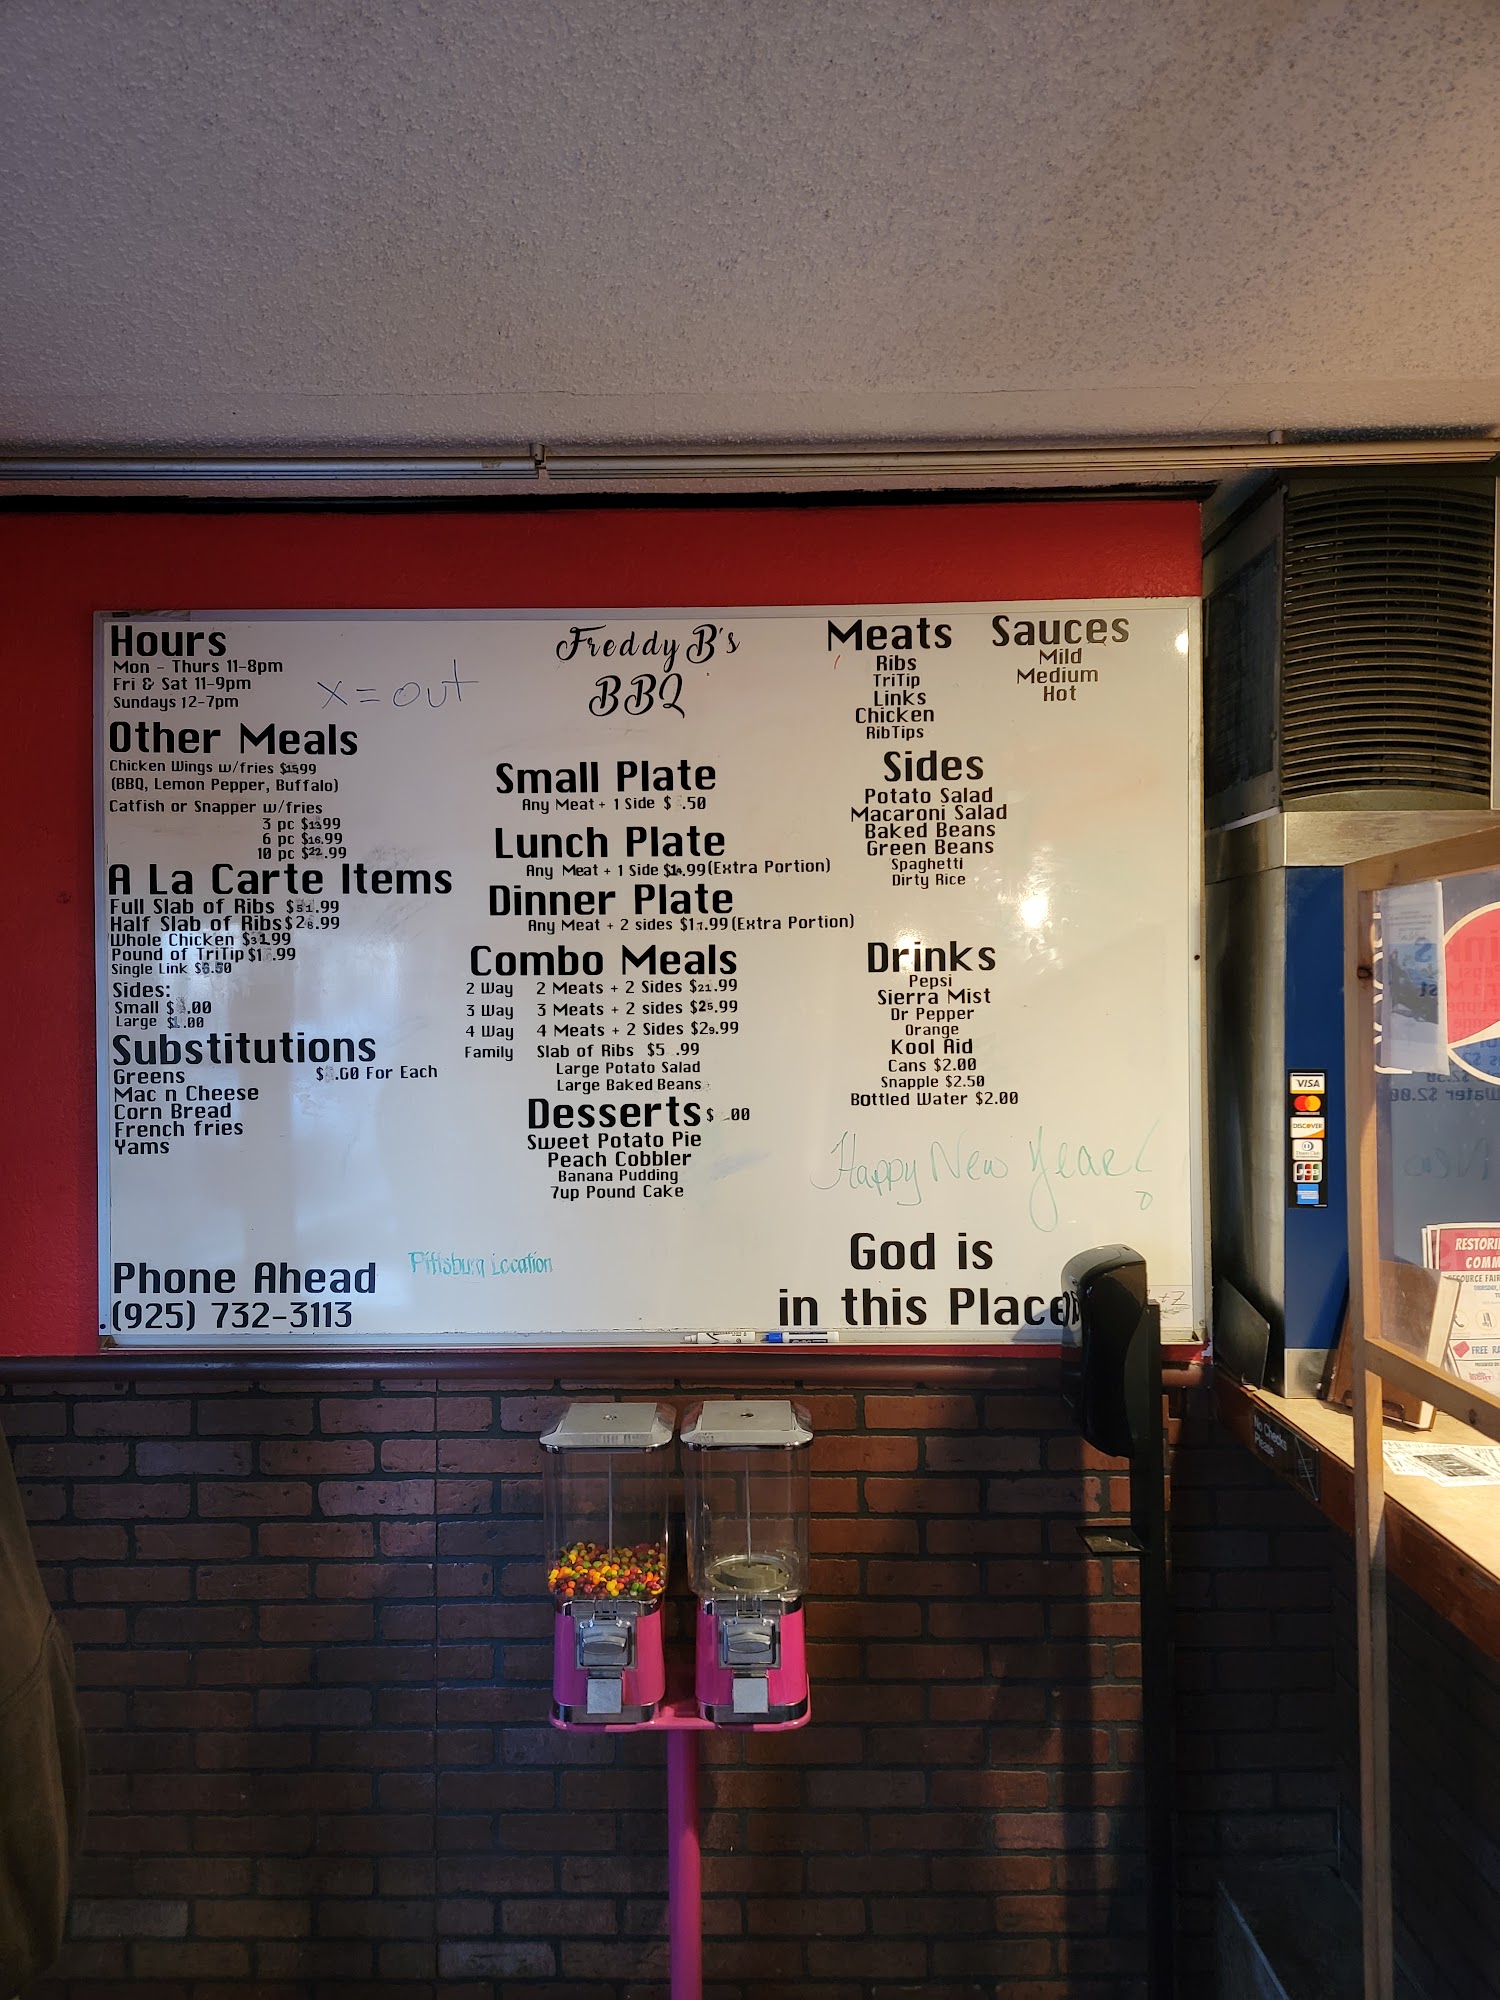 Hours
Mon - Thurs 11-8pm
Fri & Sat 11-9pm
Sundays 12-7pm
x = out
Other Meals
Chicken Wings w/fries $15.99
(BBQ, Lemon Pepper, Buffalo)
Catfish or Snapper w/fries
3 pc $13.99
6 pc $16.99
10 pc $22.99
A La Carte Items
Full Slab of Ribs $51.99
Half Slab of Ribs $28.99
Whole Chicken
Pound of TriTip
Single Link $6.50
Sides:
Small
Large
Substitutions
Greens
For Each
Mac n Cheese
Corn Bread
French fries
Yams
Phone Ahead
(925) 732-3113
Pittsburg Location
Freddy B's
BBQ
Small Plate
Any Meat + 1 Side $ .50
Lunch Plate
Any Meat + 1 Side $14.99 (Extra Portion)
Dinner Plate
Any Meat + 2 sides $17.99 (Extra Portion)
Combo Meals
2 Way 2 Meats + 2 Sides $21.99
3 Way 3 Meats + 2 sides $25.99
4 Way 4 Meats + 2 Sides $29.99
Family Slab of Ribs $5 .99
Large Potato Salad
Large Baked Beans
Desserts $ .00
Sweet Potato Pie
Peach Cobbler
Banana Pudding
7up Pound Cake
Meats
Ribs
TriTip
Links
Chicken
RibTips
Sauces
Mild
Medium
Hot
Sides
Potato Salad
Macaroni Salad
Baked Beans
Green Beans
Spaghetti
Dirty Rice
Drinks
Pepsi
Sierra Mist
Dr Pepper
Orange
Kool Aid
Cans $2.00
Snapple $2.50
Bottled Water $2.00
Happy New Year!
God is
in this Place
VISA
DISCOVER
JCB
No Checks
Please
RESTORI
COMM
FREE RA